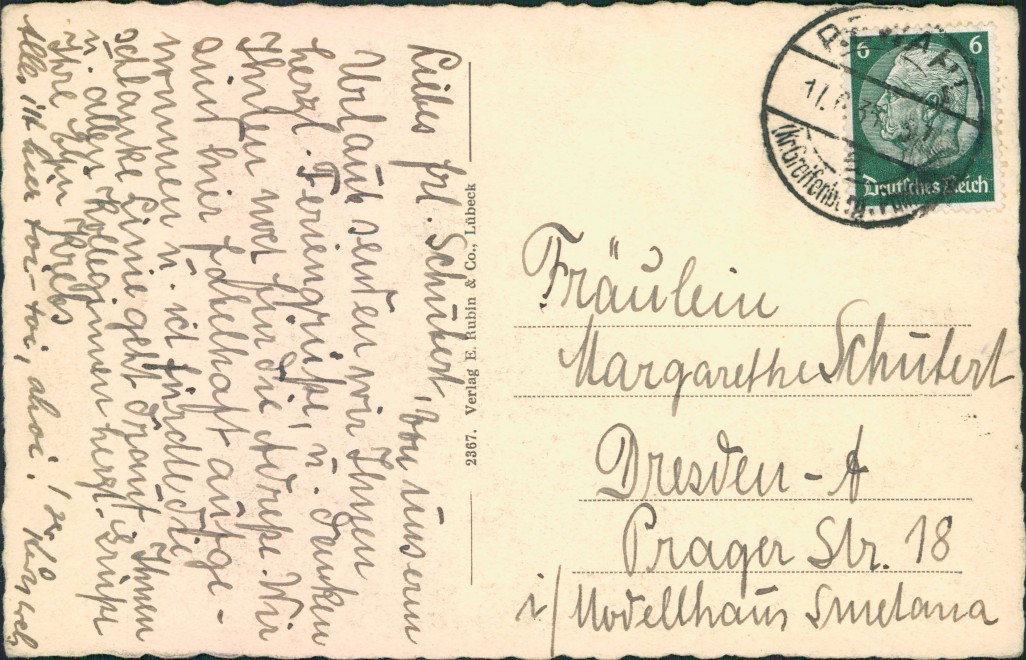 Liebes Frl. Schubert, von unserm
Urlaub senden wir Ihnen
herzl. Feriengrüße, u. danken
Ihnen noch für die Adresse. Wir
sind hier fabelhaft aufge-
nommen u. ich fürchte die
schlanke Linie geht drauf. Ihnen
u. allen Kolleginnen herzl. Grüße
Ihre
Alles ist hier toi-toi, ahoi!
2367. Verlag E. Rubin & Co., Lübeck
6 6
Deutsches Reich
17. 33
(Kr. Greifenberg
Fräulein
Margarethe Schubert
Dresden - A
Prager Str. 18
i/ Modellhaus Smetana